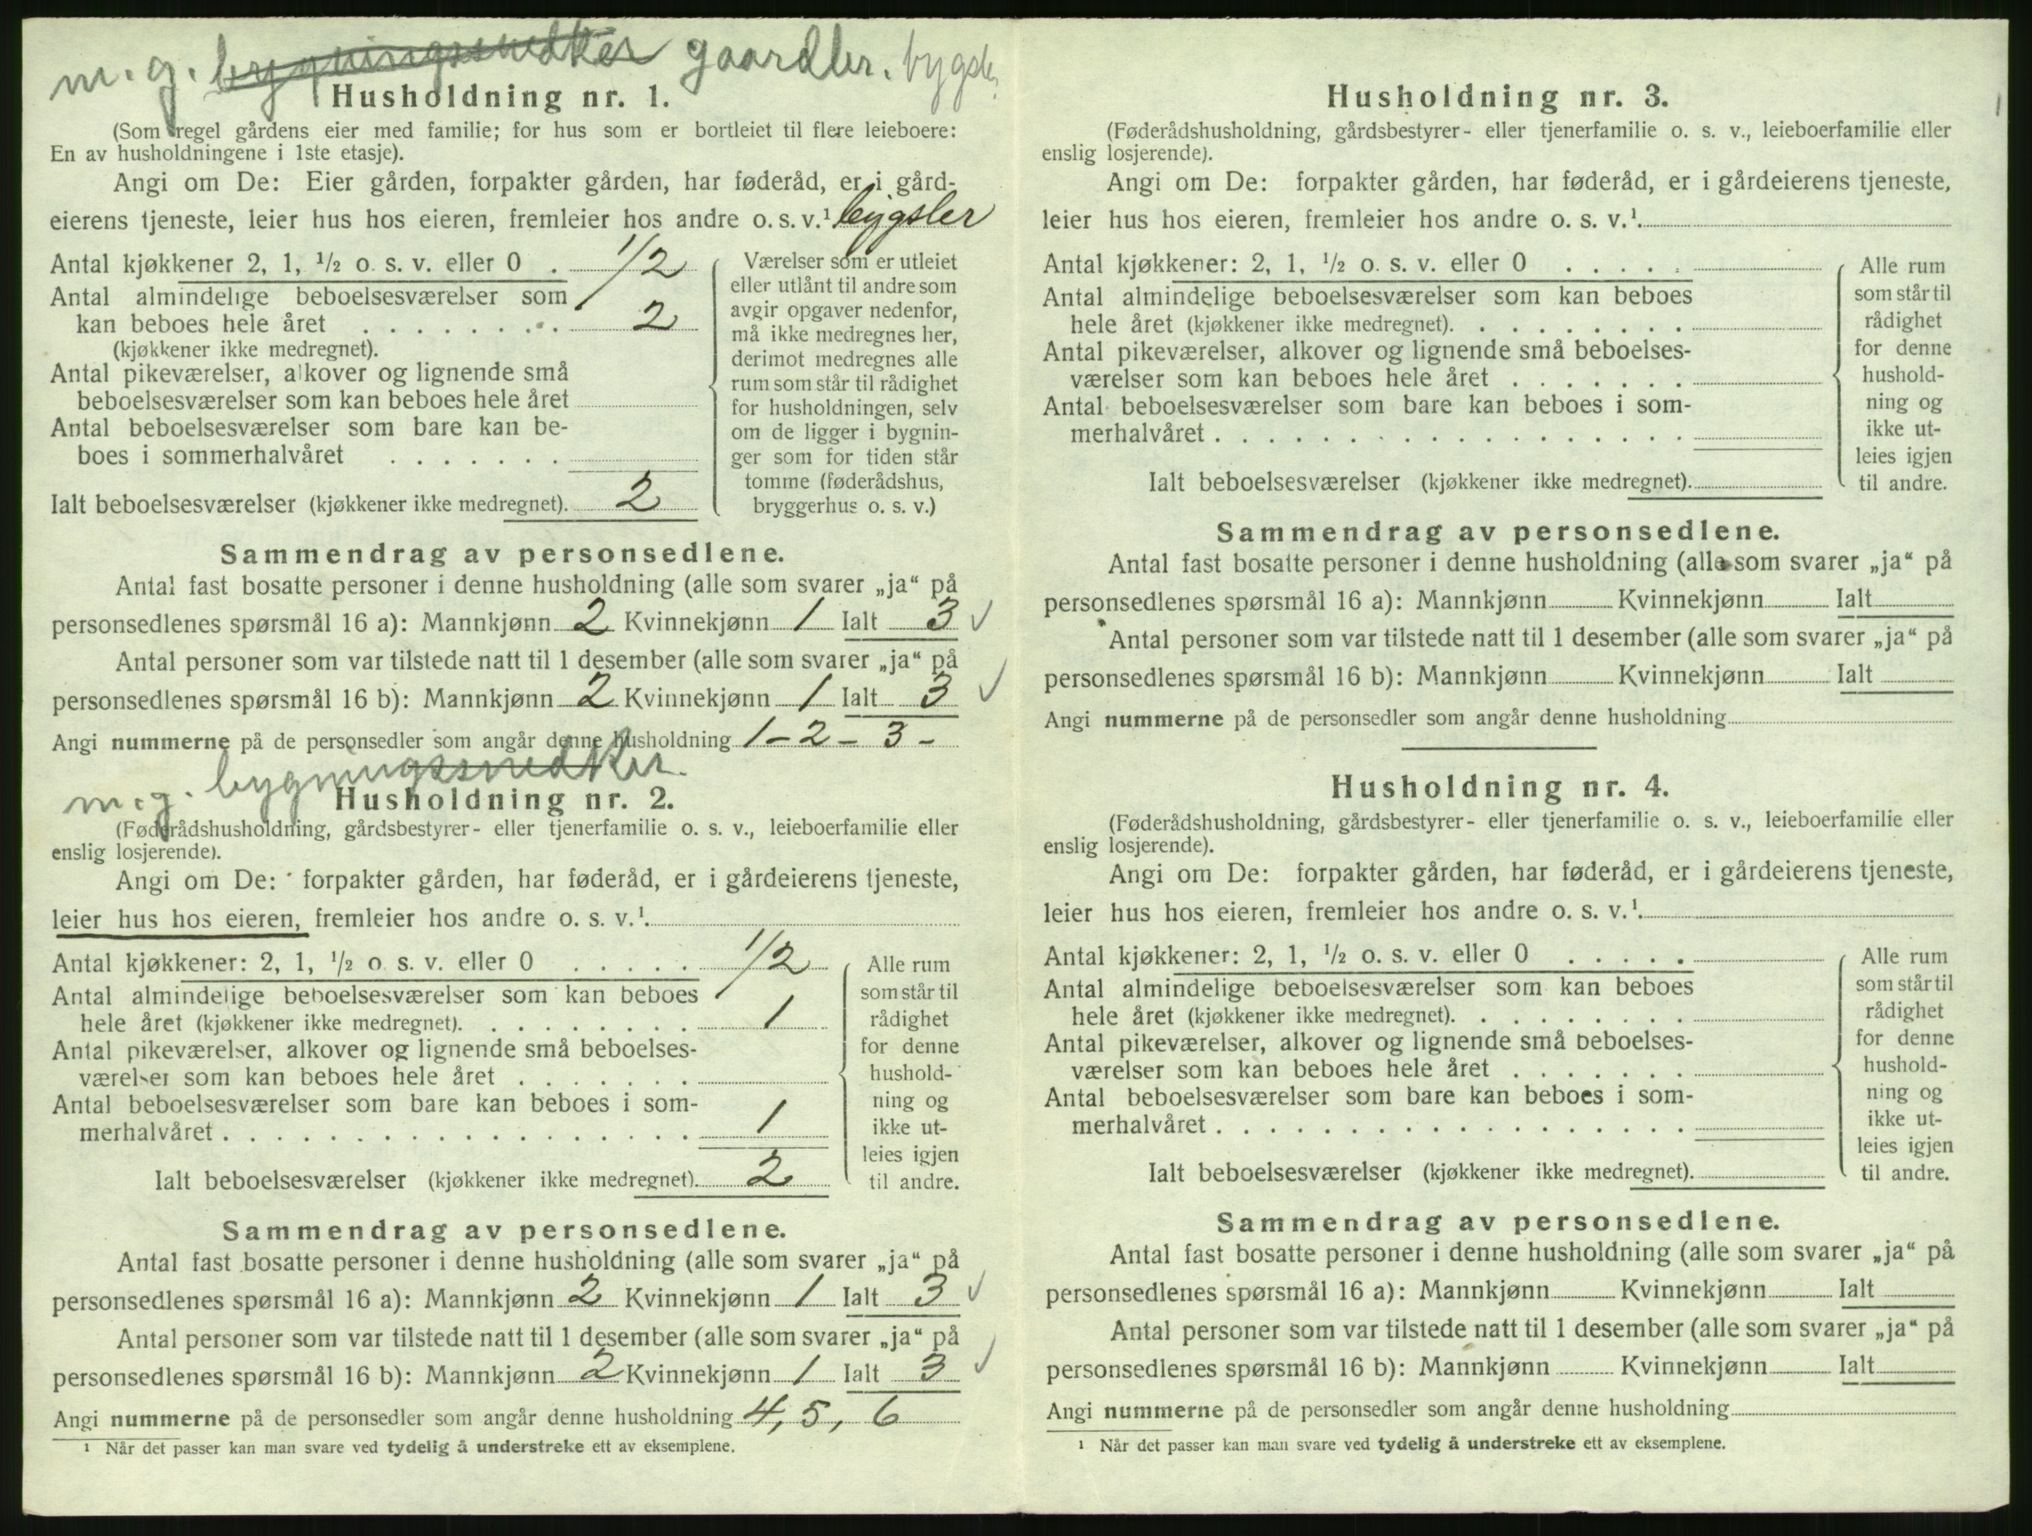 m. g. bygningssnedker gaardbr. bygsler
Husholdning nr. 1.
(Som regel gårdens eier med familie; for hus som er bortleiet til flere leieboere:
En av husholdningene i 1ste etasje).
Angi om De: Eier gården, forpakter gården, har føderåd, er i gård-
eierens tjeneste, leier hus hos eieren, fremleier hos andre o. s. v.¹ bygsler
Antal kjøkkener 2, 1, ¹/₂ o. s. v. eller 0 . 1/2
Antal almindelige beboelsesværelser som
kan beboes hele året . . . . . . . . 2
(kjøkkener ikke medregnet).
Antal pikeværelser, alkover og lignende små
beboelsesværelser som kan beboes hele året
Antal beboelsesværelser som bare kan be-
boes i sommerhalvåret . . . . . . .
Ialt beboelsesværelser (kjøkkener ikke medregnet). 2
Værelser som er utleiet
eller utlånt til andre som
avgir opgaver nedenfor,
må ikke medregnes her,
derimot medregnes alle
rum som står til rådighet
for husholdningen, selv
om de ligger i bygnin-
ger som for tiden står
tomme (føderådshus,
bryggerhus o. s. v.)
Sammendrag av personsedlene.
Antal fast bosatte personer i denne husholdning (alle som svarer „ja“ på
personsedlenes spørsmål 16 a): Mannkjønn 2 Kvinnekjønn 1 Ialt 3 ✓
Antal personer som var tilstede natt til 1 desember (alle som svarer „ja“ på
personsedlenes spørsmål 16 b): Mannkjønn 2 Kvinnekjønn 1 Ialt 3 ✓
Angi nummerne på de personsedler som angår denne husholdning 1 - 2 - 3 -
m. g. bygningssnedker.
Husholdning nr. 2.
(Føderådshusholdning, gårdsbestyrer- eller tjenerfamilie o. s. v., leieboerfamilie eller
enslig losjerende).
Angi om De: forpakter gården, har føderåd, er i gårdeierens tjeneste,
leier hus hos eieren, fremleier hos andre o. s. v.¹
Antal kjøkkener: 2, 1, ¹/₂ o. s. v. eller 0 . . . . . 1/2
Antal almindelige beboelsesværelser som kan beboes
hele året (kjøkkener ikke medregnet). . . . . . . . . 1
Antal pikeværelser, alkover og lignende små beboelses-
værelser som kan beboes hele året . . . . . . .
Antal beboelsesværelser som bare kan beboes i som-
merhalvåret . . . . . . . . . . . . . . . . . . 1
Ialt beboelsesværelser (kjøkkener ikke medregnet). 2
Alle rum
som står til
rådighet
for denne
hushold-
ning og
ikke ut-
leies igjen
til andre.
Sammendrag av personsedlene.
Antal fast bosatte personer i denne husholdning (alle som svarer „ja“ på
personsedlenes spørsmål 16 a): Mannkjønn 2 Kvinnekjønn 1 Ialt 3 ✓
Antal personer som var tilstede natt til 1 desember (alle som svarer „ja“ på
personsedlenes spørsmål 16 b): Mannkjønn 2 Kvinnekjønn 1 Ialt 3 ✓
Angi nummerne på de personsedler som angår denne husholdning 4, 5, 6
¹ Når det passer kan man svare ved tydelig å understreke ett av eksemplene.
Husholdning nr. 3.
(Føderådshusholdning, gårdsbestyrer- eller tjenerfamilie o. s. v., leieboerfamilie eller
enslig losjerende).
Angi om De: forpakter gården, har føderåd, er i gårdeierens tjeneste,
leier hus hos eieren, fremleier hos andre o. s. v.¹
Antal kjøkkener: 2, 1, ¹/₂ o. s. v. eller 0 . . . . .
Antal almindelige beboelsesværelser som kan beboes
hele året (kjøkkener ikke medregnet). . . . . . . . .
Antal pikeværelser, alkover og lignende små beboelses-
værelser som kan beboes hele året . . . . . . .
Antal beboelsesværelser som bare kan beboes i som-
merhalvåret . . . . . . . . . . . . . . . . . .
Ialt beboelsesværelser (kjøkkener ikke medregnet).
Alle rum
som står til
rådighet
for denne
hushold-
ning og
ikke ut-
leies igjen
til andre.
Sammendrag av personsedlene.
Antal fast bosatte personer i denne husholdning (alle som svarer „ja“ på
personsedlenes spørsmål 16 a): Mannkjønn Kvinnekjønn Ialt
Antal personer som var tilstede natt til 1 desember (alle som svarer „ja“ på
personsedlenes spørsmål 16 b): Mannkjønn Kvinnekjønn Ialt
Angi nummerne på de personsedler som angår denne husholdning
Husholdning nr. 4.
(Føderådshusholdning, gårdsbestyrer- eller tjenerfamilie o. s. v., leieboerfamilie eller
enslig losjerende).
Angi om De: forpakter gården, har føderåd, er i gårdeierens tjeneste,
leier hus hos eieren, fremleier hos andre o. s. v.¹
Antal kjøkkener: 2, 1, ¹/₂ o. s. v. eller 0 . . . . .
Antal almindelige beboelsesværelser som kan beboes
hele året (kjøkkener ikke medregnet). . . . . . . . .
Antal pikeværelser, alkover og lignende små beboelses-
værelser som kan beboes hele året . . . . . . .
Antal beboelsesværelser som bare kan beboes i som-
merhalvåret . . . . . . . . . . . . . . . . . .
Ialt beboelsesværelser (kjøkkener ikke medregnet).
Alle rum
som står til
rådighet
for denne
hushold-
ning og
ikke ut-
leies igjen
til andre.
Sammendrag av personsedlene.
Antal fast bosatte personer i denne husholdning (alle som svarer „ja“ på
personsedlenes spørsmål 16 a): Mannkjønn Kvinnekjønn Ialt
Antal personer som var tilstede natt til 1 desember (alle som svarer „ja“ på
personsedlenes spørsmål 16 b): Mannkjønn Kvinnekjønn Ialt
Angi nummerne på de personsedler som angår denne husholdning
¹ Når det passer kan man svare ved tydelig å understreke ett av eksemplene.